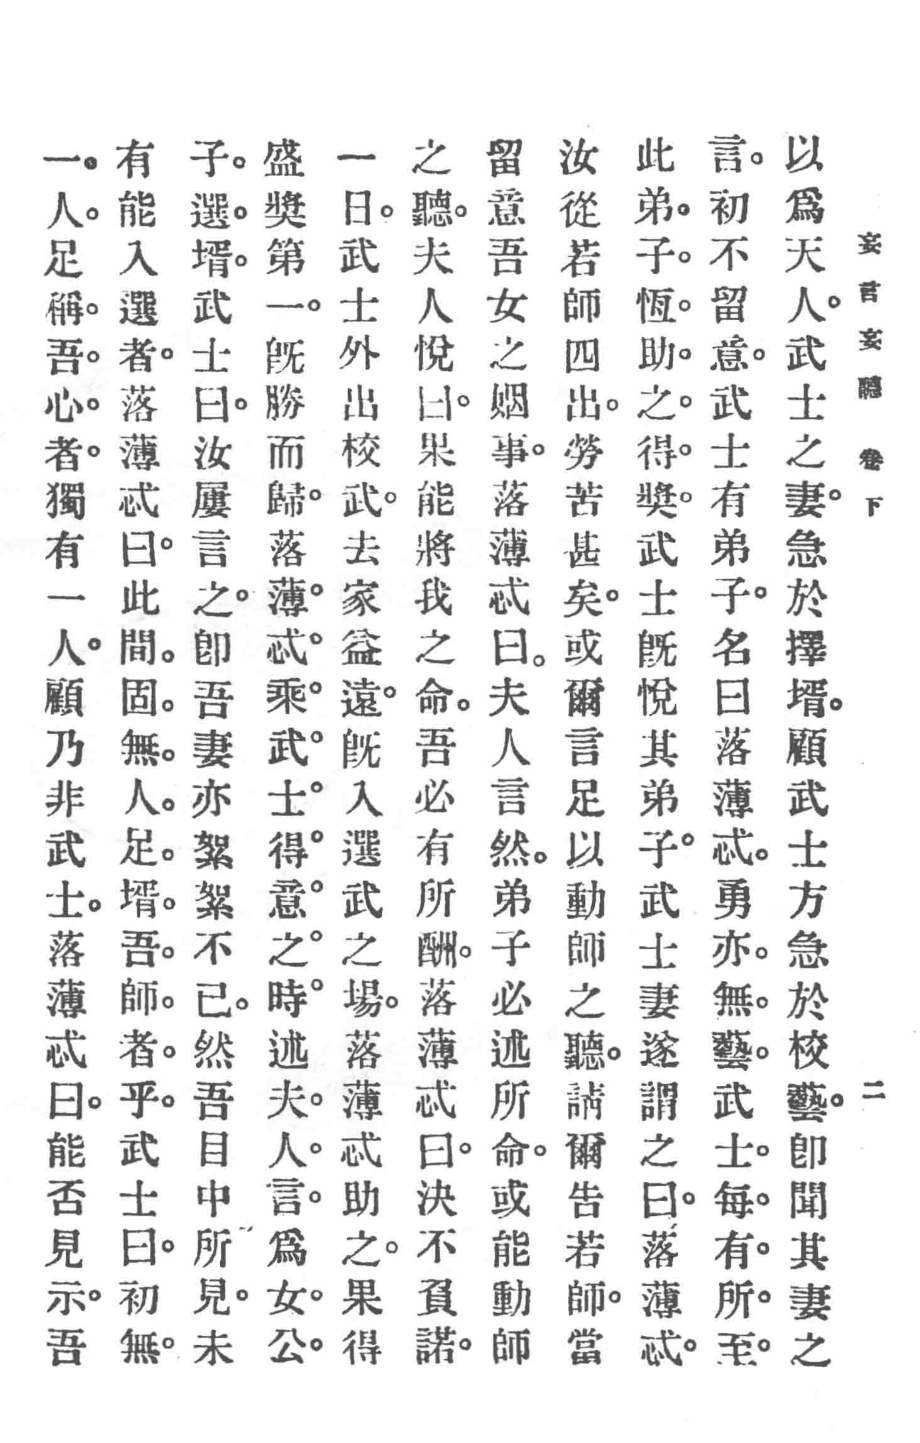 妄言妄聽　卷下　二
以爲天人。武士之妻。急於擇壻。顧武士方急於校藝。卽聞其妻之
言。初不留意。武士有弟子。名曰落薄忒。勇亦。無。藝。武士。每。有。所。至。
此弟。子。恆。助。之。得。獎。武士旣悅其弟子。武士妻遂謂之曰。落薄忒。
汝從若師四出。勞苦甚矣。或爾言足以動師之聽。請爾告若師。當
留意吾女之姻事。落薄忒曰。夫人言然。弟子必述所命。或能動師
之聽。夫人悅曰。果能將我之命。吾必有所酬。落薄忒曰。決不負諾。
一日。武士外出校武。去家益遠。旣入選武之場。落薄忒助之。果得
盛獎第一。旣勝而歸。落薄。忒。乘。武。士。得。意。之。時。述夫。人。言。爲女。公。
子。選。壻。武士曰。汝屢言之。卽吾妻亦絮絮不已。然吾目中所見。未
有能入選者。落薄忒曰。此間。固。無。人。足。壻。吾。師。者。乎。武士曰。初無。
一。人。足稱。吾。心。者。獨有一人。顧乃非武士。落薄忒曰。能否見示。吾